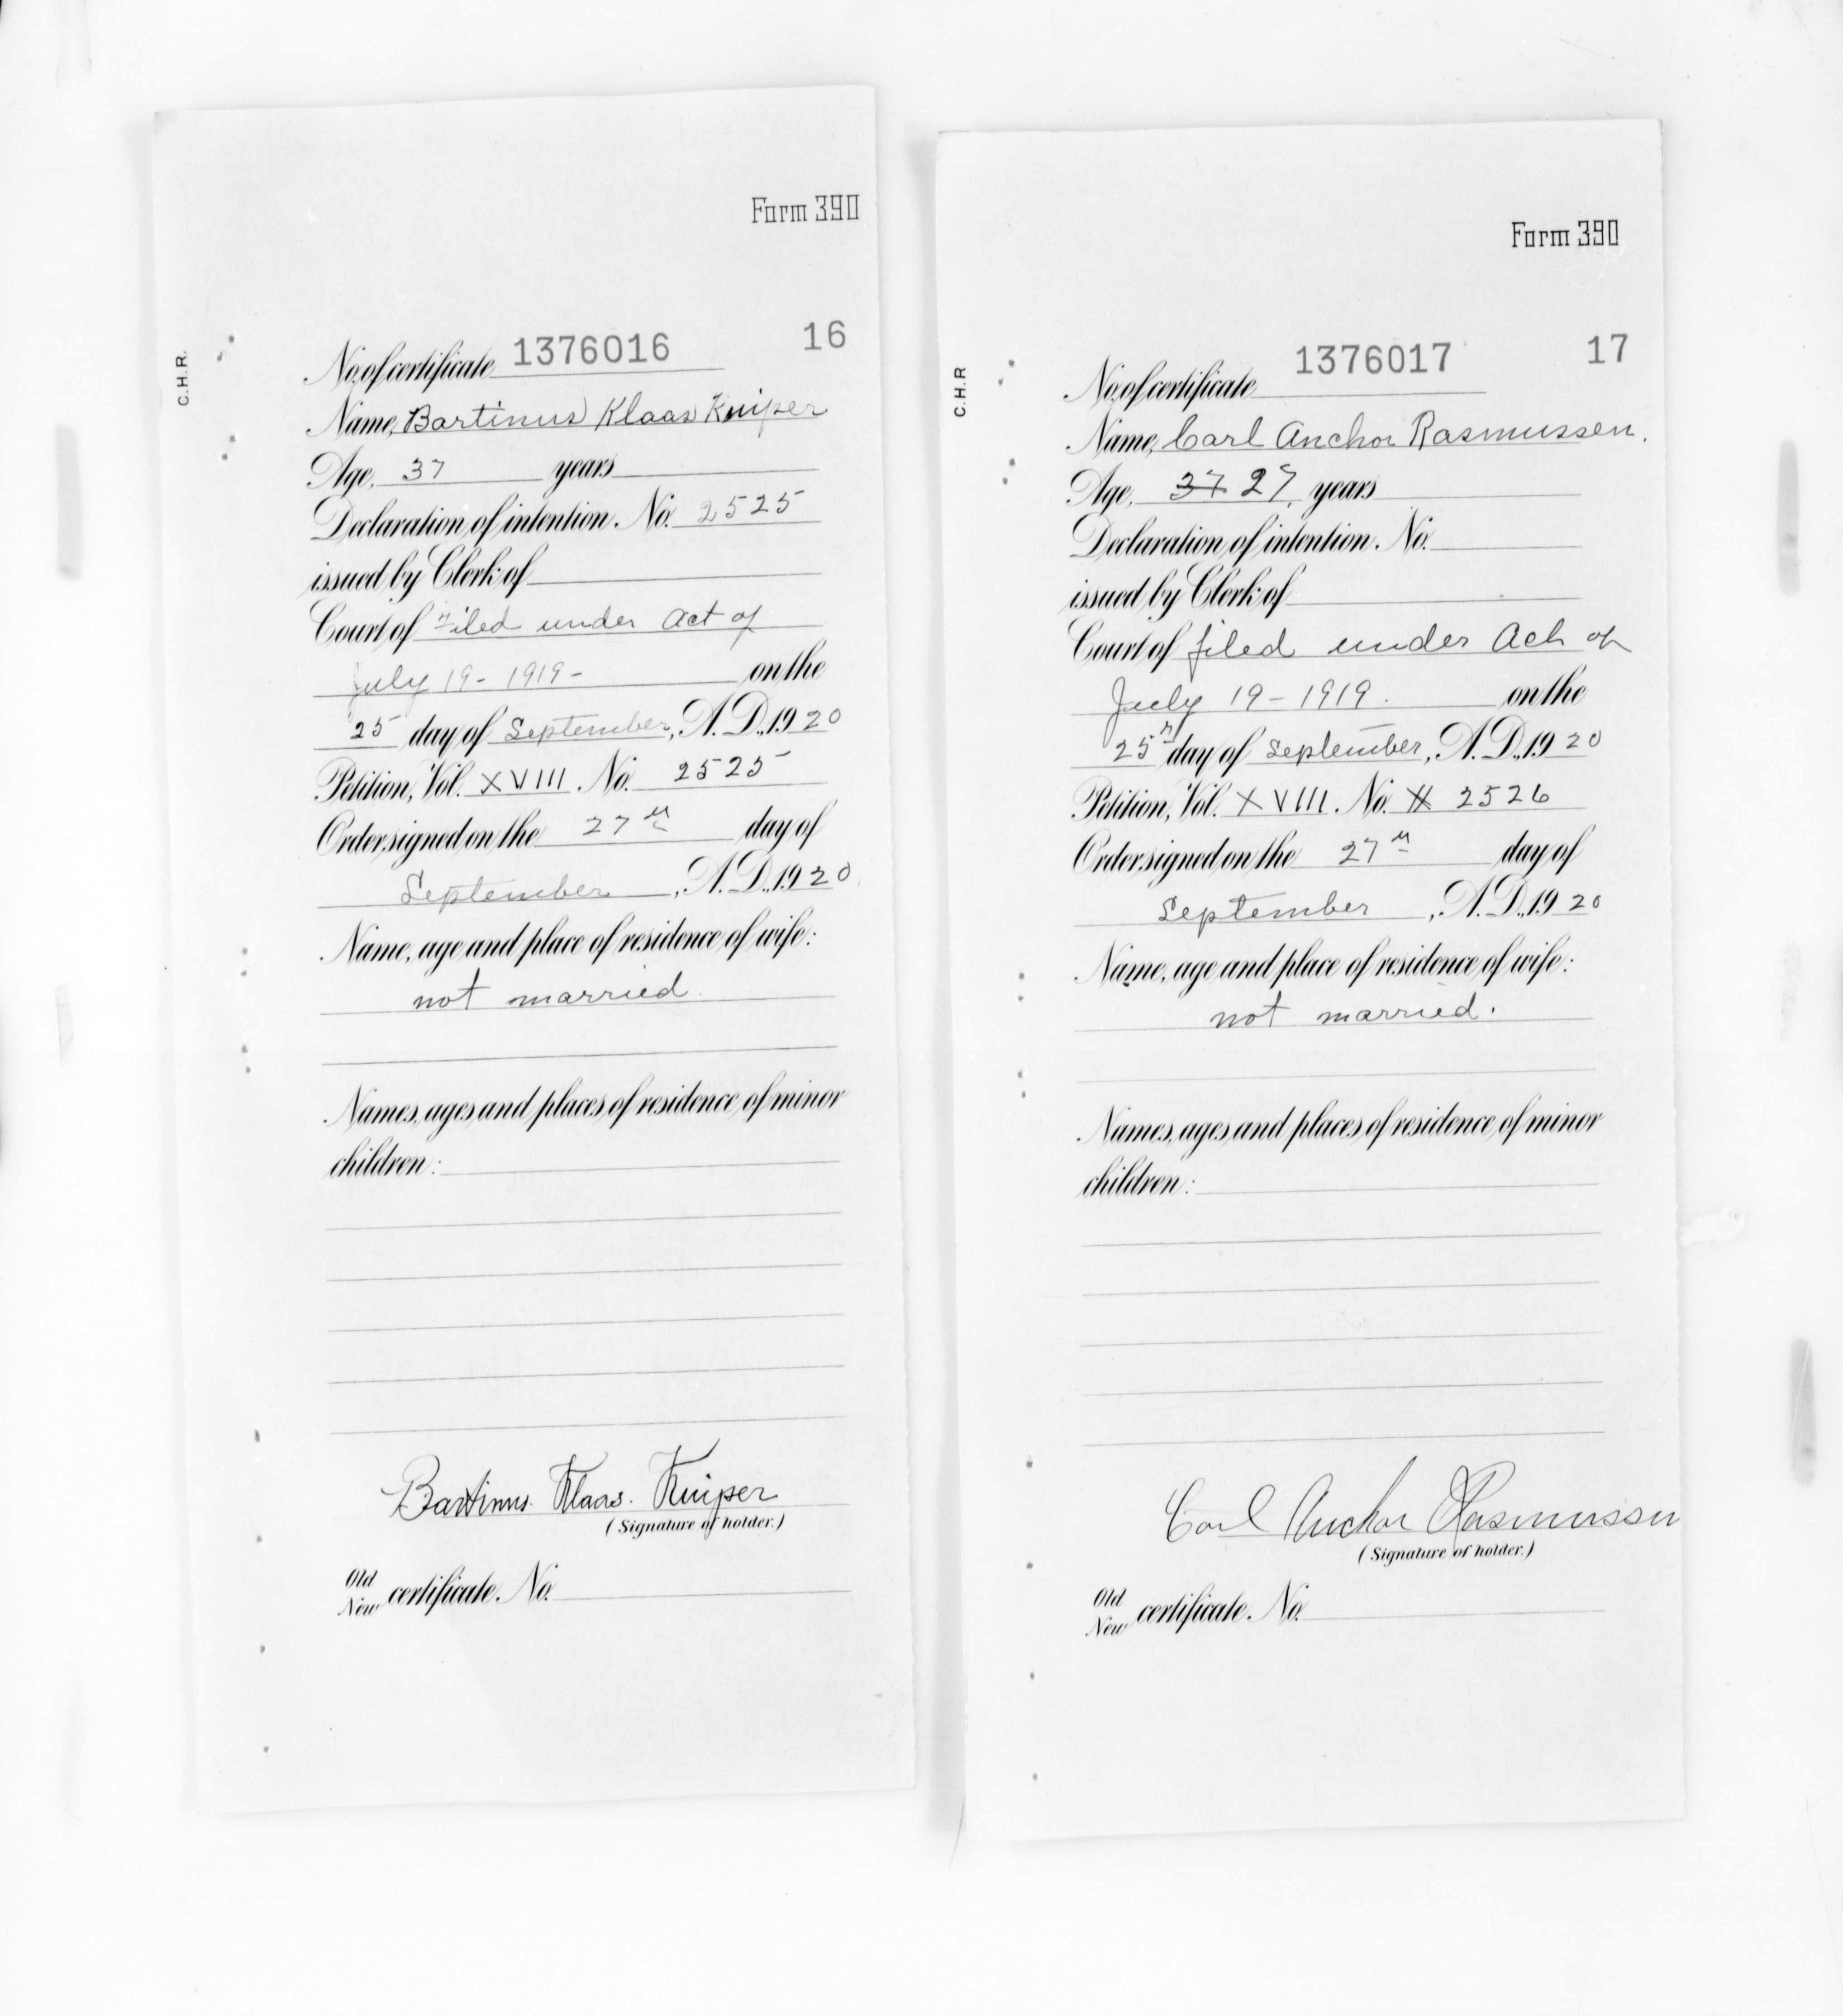 Form 390
C.H.R.
No. of certificate 1376016 16
Name, Bartinus Klaas Kuiper
Age, 37 years
Declaration of intention. No. 2525
issued by Clerk of
Court of Filed under Act of
July 19 - 1919 - on the
25 day of September, A. D., 1920
Petition, Vol. XVIII. No. 2525
Order signed on the 27th day of
September, A. D., 1920
Name, age and place of residence of wife:
not married.
Names, ages and places of residence of minor
children:
Bartinus. Klaas. Kuiper
(Signature of holder.)
Old
New certificate. No.
Form 390
C.H.R
No. of certificate 1376017 17
Name, Carl Anchor Rasmussen.
Age, 37 27, years
Declaration of intention. No.
issued by Clerk of
Court of filed under Act of
July 19 - 1919. on the
25th day of September, A. D., 1920
Petition, Vol. XVIII. No. # 2526
Order signed on the 27th day of
September, A. D., 1920
Name, age and place of residence of wife:
not married.
Names, ages and places of residence of minor
children:
Carl Anchor Rasmussen
(Signature of holder.)
Old
New certificate. No.